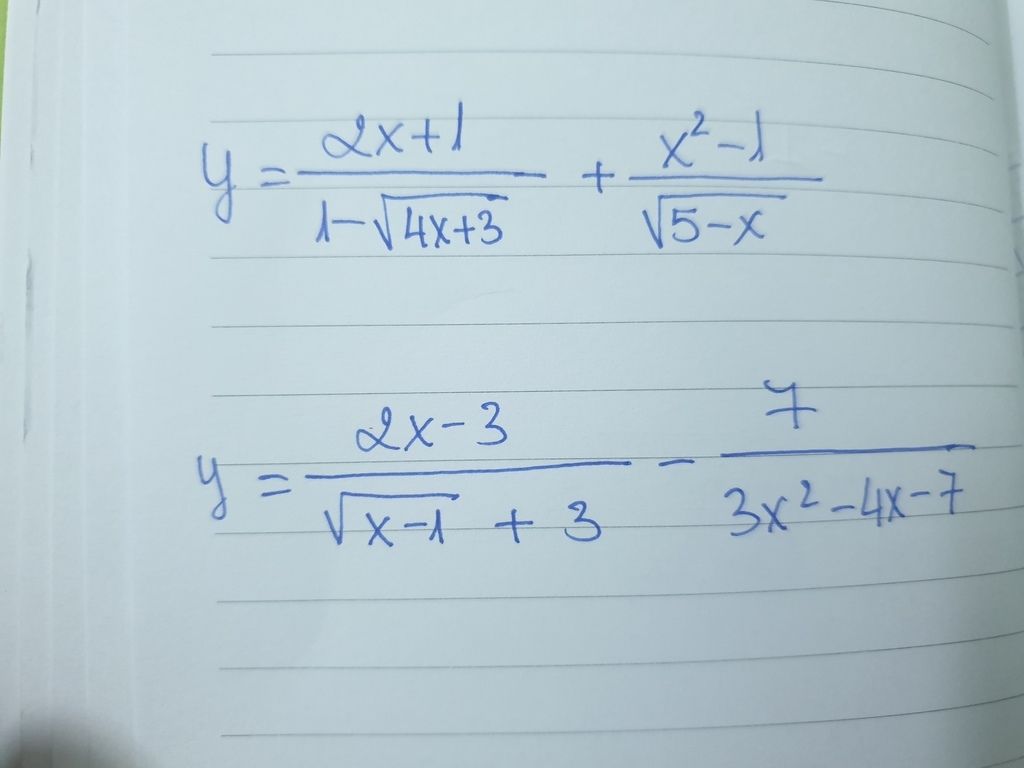 y = (2x+1)/(1-√(4x+3)) + (x²-1)/√(5-x)
y = (2x-3)/(√(x-1) + 3) - 7/(3x²-4x-7)